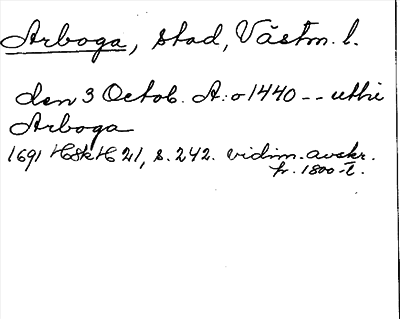 Arboga, stad, Västm. l.
den 3 Octob. A:o 1440 -- uthi
Arboga
1691 HSkH 21, s. 242. vidim. avskr.
fr. 1800-t.